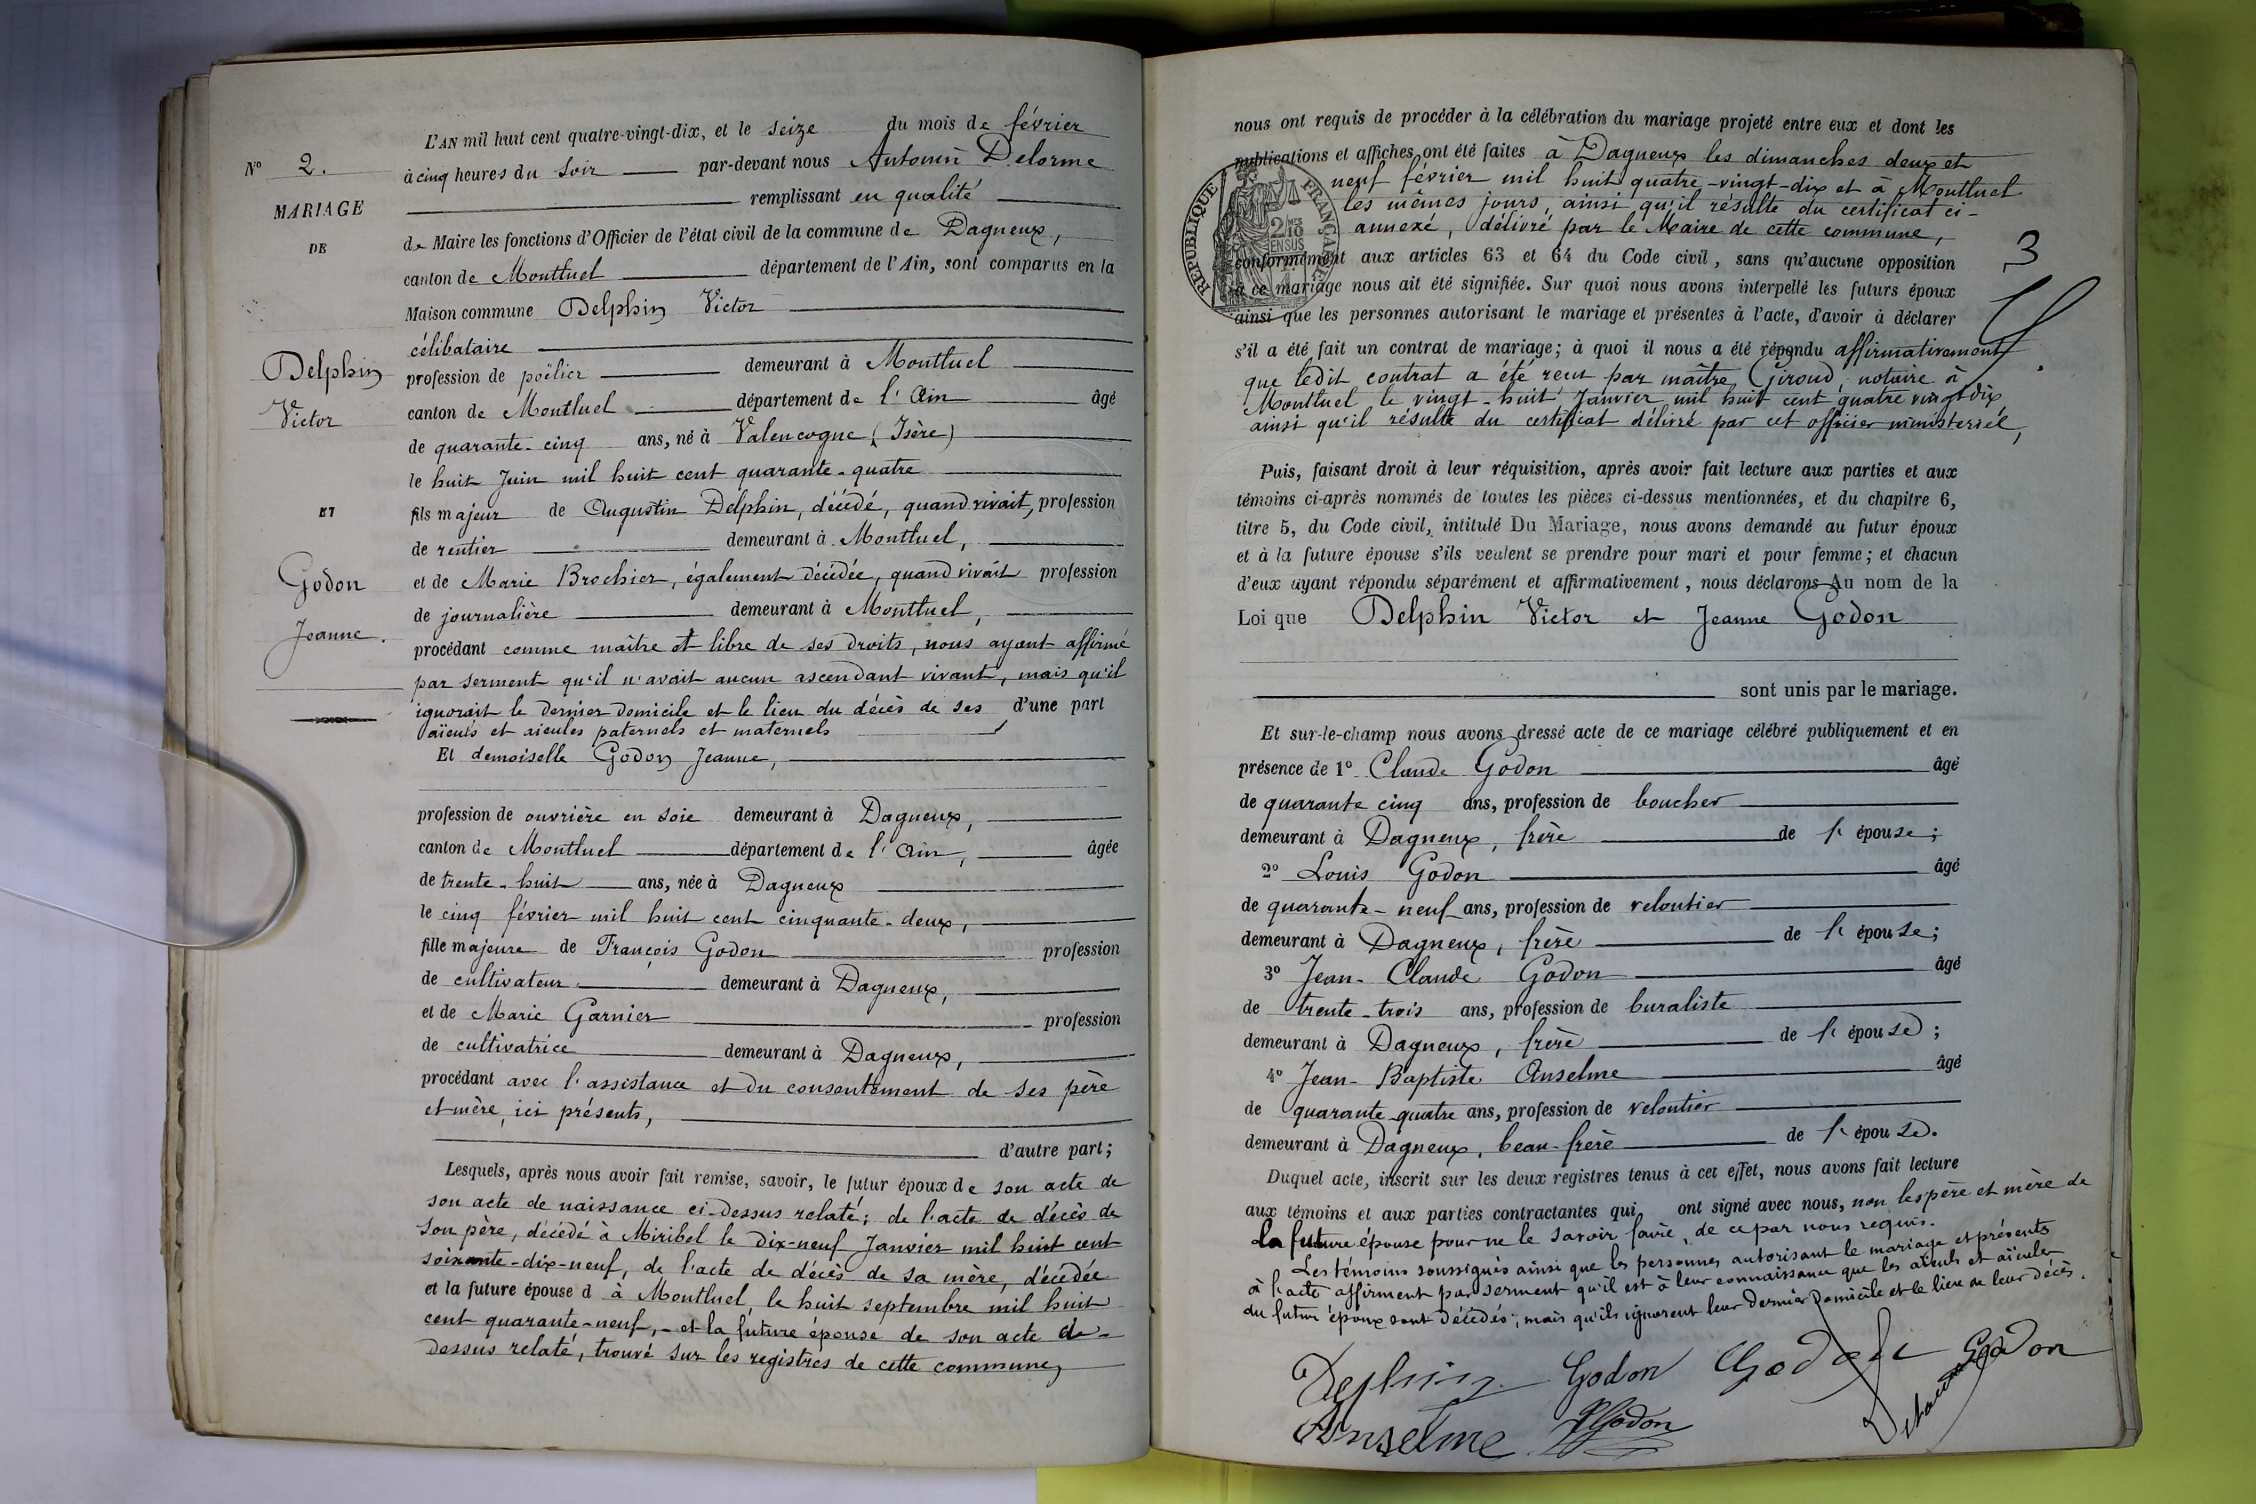 L'AN mil huit cent quatre-vingt-dix, et le seize du mois de février
N° 2. à cinq heures du soir par-devant nous Antonin Delorme
remplissant en qualité
MARIAGE
DE
de Maire les fonctions d'Officier de l'état civil de la commune de Dagneux,
canton de Montluel département de l'Ain, sont comparus en la
Maison commune Delphin Victor
célibataire
Delphin
Victor
profession de poêlier demeurant à Montluel
canton de Montluel département de l'Ain âgé
de quarante-cinq ans, né à Valencogne (Isère)
le huit Juin mil huit cent quarante-quatre
ET
fils majeur de Augustin Delphin, décédé, quand vivait, profession
de rentier demeurant à Montluel,
Godon
Jeanne.
et de Marie Brochier, également décédée, quand vivait profession
de journalière demeurant à Montluel,
procédant comme maître et libre de ses droits, nous ayant affirmé
par serment qu'il n'avait aucun ascendant vivant, mais qu'il
ignorait le dernier domicile et le lieu du décès de ses d'une part
aïeuls et aieules paternels et maternels
Et demoiselle Godon Jeanne,
profession de ouvrière en soie demeurant à Dagneux,
canton de Montluel département de l'Ain, âgée
de trente-huit ans, née à Dagneux
le cinq février mil huit cent cinquante-deux,
fille majeure de François Godon profession
de cultivateur demeurant à Dagneux,
et de Marie Garnier profession
de cultivatrice demeurant à Dagneux,
procédant avec l'assistance et du consentement de ses père
et mère, ici présents,
d'autre part;
Lesquels, après nous avoir fait remise, savoir, le futur époux de son acte de
son acte de naissance ci-dessus relaté; de l'acte de décès de
son père, décédé à Miribel le dix-neuf Janvier mil huit cent
soixante-dix-neuf, de l'acte de décès de sa mère, décédée
et la future épouse d à Montluel, le huit septembre mil huit
cent quarante-neuf, - et la future épouse de son acte de-
dessus relaté, trouvé sur les registres de cette commune,
nous ont requis de procéder à la célébration du mariage projeté entre eux et dont les
publications et affiches ont été faites à Dagneux les dimanches deux et
neuf février mil huit quatre-vingt-dix et à Montluel
les mêmes jours, ainsi qu'il résulte du certificat ci-
annexé, délivré par le Maire de cette commune,
RÉPUBLIQUE FRANÇAISE
3
conformément aux articles 63 et 64 du Code civil, sans qu'aucune opposition
à ce mariage nous ait été signifiée. Sur quoi nous avons interpellé les futurs époux
ainsi que les personnes autorisant le mariage et présentes à l'acte, d'avoir à déclarer
s'il a été fait un contrat de mariage; à quoi il nous a été répondu affirmativement
que ledit contrat a été reçu par maître Giroud, notaire à
Montluel le vingt-huit Janvier mil huit cent quatre vingt dix
ainsi qu'il résulte du certificat délivré par cet officier ministeriél,
Puis, faisant droit à leur réquisition, après avoir fait lecture aux parties et aux
témoins ci-après nommés de toutes les pièces ci-dessus mentionnées, et du chapitre 6,
titre 5, du Code civil, intitulé Du Mariage, nous avons demandé au futur époux
et à la future épouse s'ils veulent se prendre pour mari et pour femme; et chacun
d'eux ayant répondu séparément et affirmativement, nous déclarons Au nom de la
Loi que Delphin Victor et Jeanne Godon
sont unis par le mariage.
Et sur-le-champ nous avons dressé acte de ce mariage célébré publiquement et en
présence de 1° Claude Godon âgé
de quarante cinq ans, profession de boucher
demeurant à Dagneux, frère de l'épouse;
2° Louis Godon âgé
de quarante-neuf ans, profession de veloutier
demeurant à Dagneux, frère de l'épouse;
3° Jean-Claude Godon âgé
de trente-trois ans, profession de buraliste
demeurant à Dagneux, frère de l'épouse;
4° Jean-Baptiste Anselme âgé
de quarante-quatre ans, profession de veloutier
demeurant à Dagneux, beau-frère de l'épouse.
Duquel acte, inscrit sur les deux registres tenus à cet effet, nous avons fait lecture
aux témoins et aux parties contractantes qui ont signé avec nous, non les père et mère de
la future épouse pour ne le savoir faire, de ce par nous requis.
Les témoins soussignés ainsi que les personnes autorisant le mariage et présents
à l'acte affirment par serment qu'il est à leur connaissance que les aïeuls et aïeules
du futur époux sont décédés; mais qu'ils ignorent leur dernier domicile et le lieu de leur décès.
Delphin Godon Godon
Anselme Godon